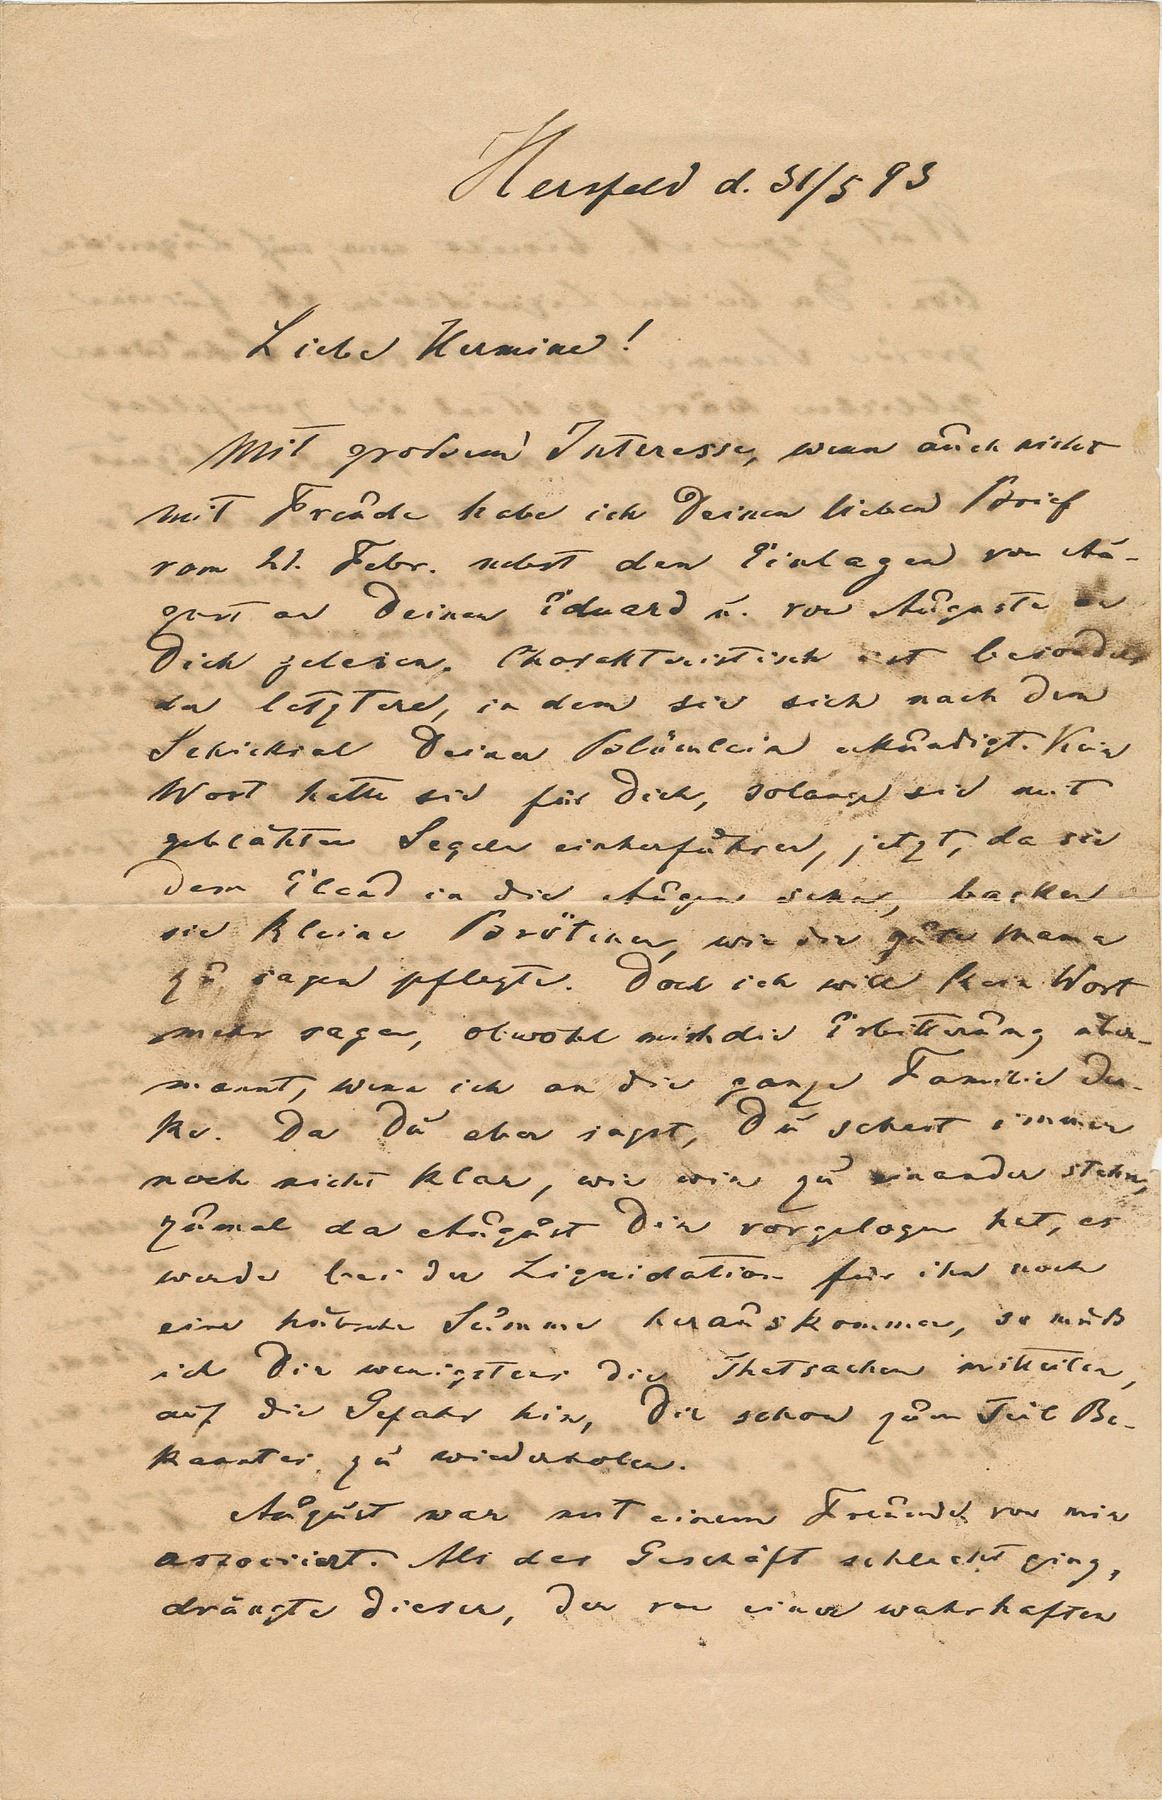 Hersfeld d. 31/5 93
Liebe Hermine!
Mit großem Interesse, wenn auch nicht
mit Freude habe ich Deinen lieben Brief
vom 21. Febr. nebst den Einlagen von Au-
gust an Deinen Eduard u. von Auguste an
Dich gelesen. Charakteristisch ist besonders
der letztere, in dem sie sich nach dem
Schicksal Deiner Blümlein erkundigt. Kein
Wort hatte sie für Dich, solange sie mit
geblähten Segeln einherfuhren, jetzt, da sie
dem Elend in die Augen sehn, backen
sie kleine Brötchen, wie die gute Mama
zu sagen pflegte. Doch ich will kein Wort
mehr sagen, obwohl mich die Erbitterung über-
mannt, wenn ich an die ganze Familie den-
ke. Da Du aber sagst, Du sehest immer
noch nicht klar, wie wir zu einander stehn,
zumal da August Dir vorgelogen hat, es
werde bei der Liquidation für ihn noch
eine hübsche Summe herauskommen, so muß
ich Dir wenigstens die Thatsachen mitteilen,
auf die Gefahr hin, Dir schon zum Teil Be-
kanntes zu wiederholen.
August war mit einem Freunde von mir
associiert. Als das Geschäft schlecht ging,
drängte dieser, der von einer wahrhaften